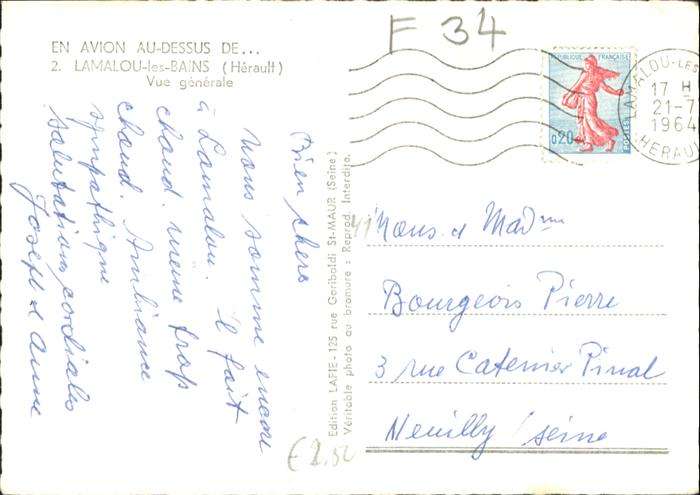 F 34
EN AVION AU-DESSUS DE...
2. LAMALOU-les-BAINS (Hérault)
Vue générale
RÉPUBLIQUE FRANÇAISE
0,20
POSTES
LAMALOU-LES
17 H
21-7
1964
HERAUL
Bien chers
nous somme encore
à Lamalou. il fait
chaud. meme trop
chaud. Ambiance
sympathique
salutations cordiales
Joseph & Anne
Edition LAPIE - 125 rue Garibaldi St-MAUR (Seine)
Véritable photo au bromure : Reprod. Interdite.
Mons. & Mad me
Bourgeois Pierre
3 rue Catenier Pinal
Neuilly / seine
€ 2.50